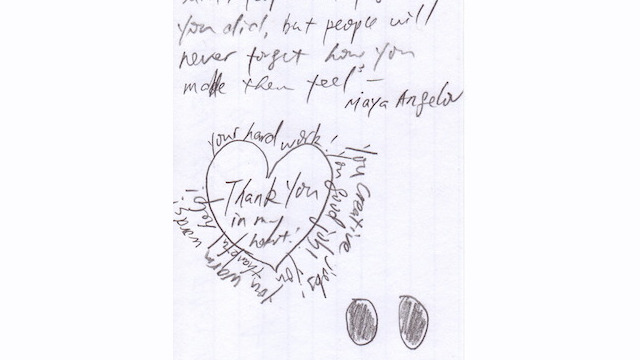 you did, but people will
never forget how you
made them feel" —
Maya Angelou
your hard work!
Thank You
in my
heart!
You creative jobs!
You good job!
you warm words!
thankful